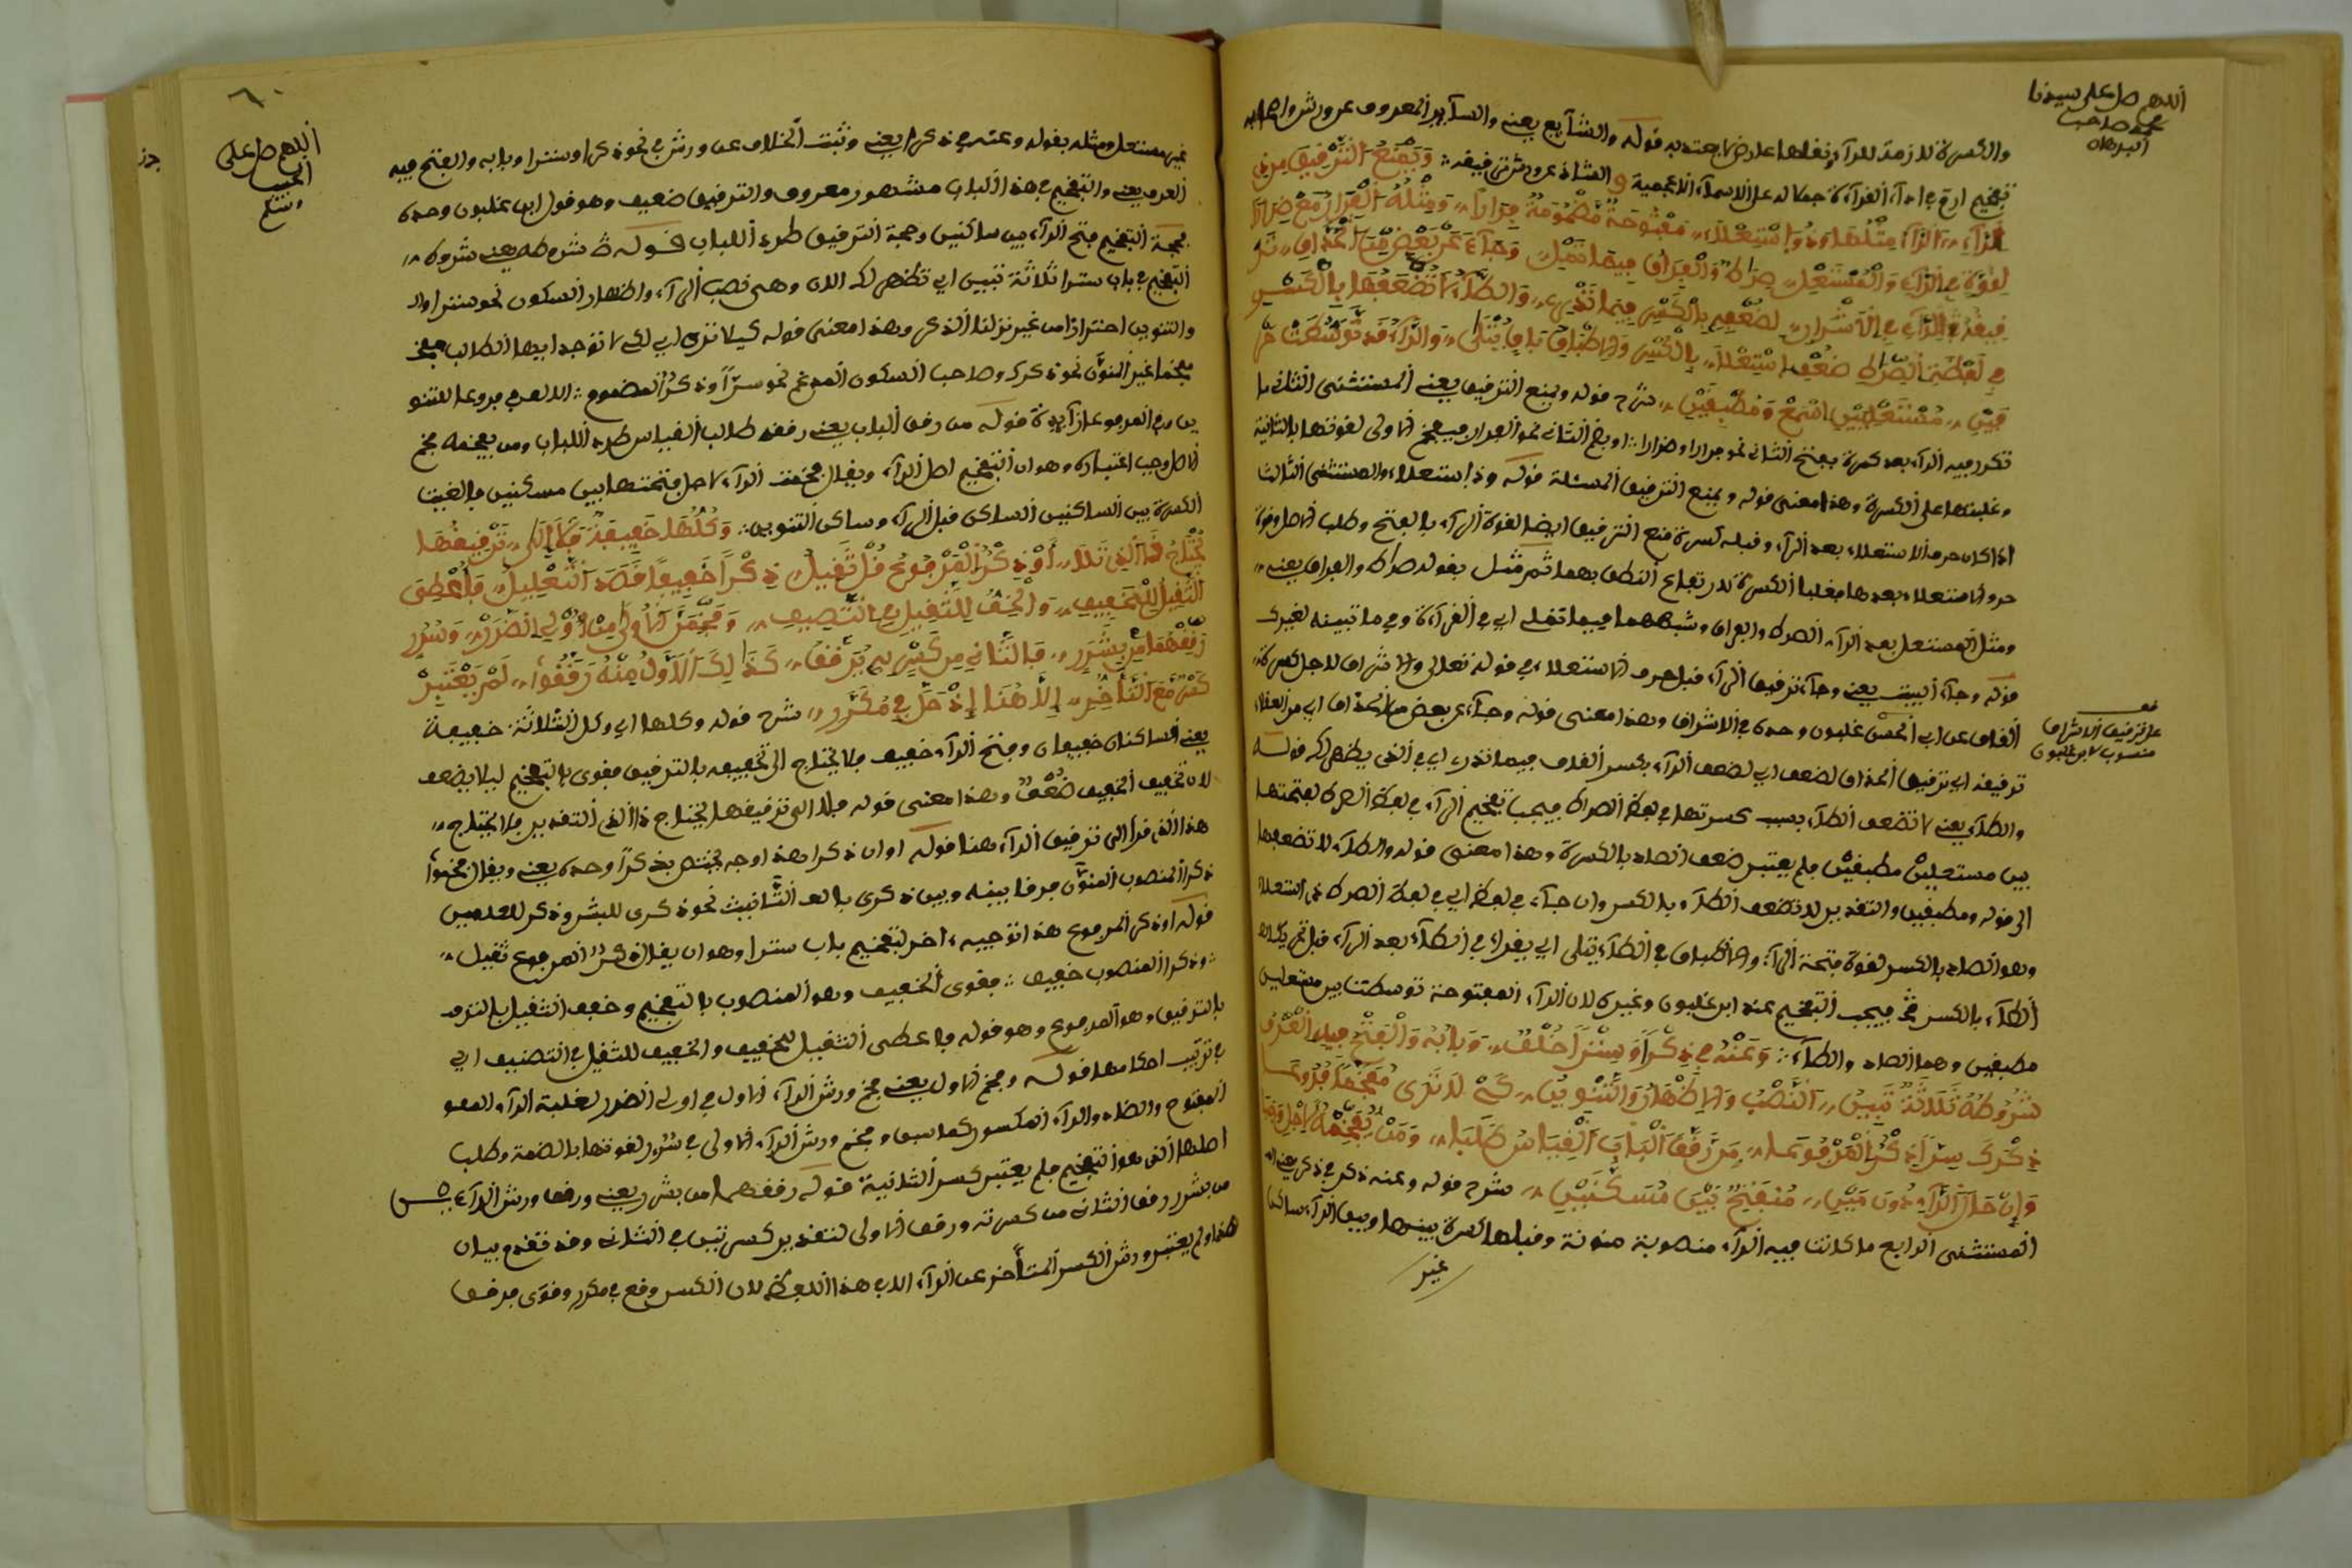 اللهم صل على سيدنا
محمد صاحب
البرهان
والكسرة لازمة للراء ونقلها عارض لا يعتد به قوله والشايع يعني والساير المعروف عن ورش وأصحابه
تفخيم ارم في اداء القراءة حملا له على الاسماء الاعجمية والشاذ عن ورش ترقيقه وَيَمْنَعُ التَّرْقِيقَ مِن
الرَّاءِ الرَّاءُ مِثْلُهَا وَذُو اسْتِعْلَاءِ مَفْتُوحَةٌ مَضْمُومَةٌ فِرَاراً وَمِثْلُهُ الْفِرَارُ مَعْ ضِرَارَا
لِقُوَّةٍ فِي الرَّاءِ وَالْمُسْتَعْلِ صِرَاطٌ وَالْفِرَاقُ فِيمَا تُمْلِ وَجَاءَ عَنْ بَعْضٍ مِنَ الْحُذَّاقِ تَر
قِيقُ الرَّاءِ فِي الْاِشْرَاقِ لِضُعْفِهِ بِالْكَسْرِ فِيمَا تَدْرِي وَالطَّاءُ لَا تُضْعِفُهَا بِالْكَسْرِ
فِي لَفْظَةِ الصِّرَاطِ ضَعُفَ اسْتِعْلَا بِالْكَسْرِ وَالْاِطْبَاقُ بَاقٍ يُتْلَى وَالرَّاءُ قَدْ تَوَسَّطَتْ حَر
فَيْنِ مُسْتَعْلِيَيْنِ اسْمَعْ وَمُطْبَقَيْنِ شرح قوله ويمنع الترقيق يعني المستثنى الثاني ما
تكرر فيه الراء بعد كسرة بفتح الثاني نحو فرارا وضرارا او بضم الثاني نحو الفرار فيفخم الاولى لقوتها بالثانية
وغلبتها على الكسرة وهذا معنى قوله ويمنع الترقيق المسئلة قوله وذا استعلاء والمستثنى الثالث
اذا كان حرف الاستعلاء بعد الراء وقبله كسرة منع الترقيق ايضا لقوة الراء بالفتح وطلب
حروف الاستعلاء بعدها فغلبا الكسرة لارتفاع النطق بهما ثم مثل بقوله صراط والفراق يعني
ومثل المستعل بعد الراء الصراط والفراق وشبههما فيما تملى اي في القراءة وفي ما تبينه لغيرك
قوله وجاء البيت يعني وجاء ترقيق الراء قبل حرف الاستعلاء في قوله تعالى والاشراق لاجل كسرة
القاف عن ابي الحسن غلبون وحده في الاشراق وهذا معنى قوله وجاء عن بعض من الحذاق اي من الفضلاء
قف
على ترقيق الاشراق
منسوب لابن غلبون
ترقيقه اي ترقيق الحذاق لضعف اي لضعف الراء بكسر القاف فيما تدري اي في الذي يظهر لك قوله
والطاء يعني لا تضعف الطاء بسبب كسرتها في لفظ الصراط فيجب تفخيم الراء في لفظ الصراط لفتحتها
بين مستعليين مطبقين فلم يعتبر ضعف الصاد بالكسرة وهذا معنى قوله والطاء لا تضعفها
الى قوله ومطبقين والتقدير لا تضعف الطاء بالكسر وان جاء في لفظ اي في لفظة الصراط
وهو الصاد بالكسر لقوة فتحة الراء والاطباق في الطاء يتلى اي يقراء في الطاء بعد الراء
الطاء بالكسر فيجب التفخيم عند ابن غلبون وغيره لان الراء المفتوحة توسطت بين مستعليين
مطبقين وهما الصاد والطاء وَعَنْهُ فِي ذِكْراً وَسِتْراً خُلْفٌ وَبَابِهُ وَالْفَتْحُ فِيهِ الْعُرْفُ
شُرُوطُهُ ثَلَاثَةٌ تَبِينُ النَّصْبُ وَالْاِظْهَارُ وَالتَّنْوِينُ كَيْ لَا تَرَى مُفَخَّماً فُرُوعَا
ذِكْرَكَ سِرّاً ذِكْرٌ الْمَرْفُوعَا مَنْ رَقَّقَ الْبَابَ الْقِيَاسَ طَلَبَا وَمَنْ يُفَخِّمْهُ
وَإِنْ حَلَّ الرَّاءُ دُونَ مَيْنِ مُنْفَتِحٌ بَيْنَ مُسَكَّنَيْنِ شرح قوله وعنه في ذكرا
المستثنى الرابع ما كانت فيه الراء منصوبة منونة وقبلها كسرة بينها وبين الراء ساكن
غير
٦٠
اللهم صل على
الحبيب
وسلم
غير مستعل ومثله بقوله وعنه في ذكرا يعني وثبت الخلاف عن ورش في نحو ذكرا وسترا وبابه والفتح فيه
العرف يعني والتفخيم في هذا الباب مشهور معروف والترقيق ضعيف وهو قول ابن غلبون وحده
فحجة التفخيم فتح الراء بين ساكنين وحجة الترقيق طرد اللباب قوله شروطه يعني شروط
التفخيم في باب سترا ثلاثة تبين اي تظهر لك الان وهي نصب الراء واظهار السكون نحو سترا
والتنوين احترازا من غير نزلنا الذكر وهذا معنى قوله كي لا ترى اي لكي لا توجد ايها الطالب
مفخما غير المنون نحو ذكرك وصاحب السكون المدغم نحو سرّاً وذكرٌ المضموم الالف في فروعا للتنو
ين وفي المرفوعا زايدة قوله من رقق الباب يعني رققه طالب القياس طرد اللباب ومن يفخمه فخم
لاصل وجب اعتباره وهو ان التفخيم اصل الراء ويقال فخمت الراء لاجل فتحتها بين مسكنين
الكسرة بين الساكنين الساكن قبل الراء وساكن التنوين وَكُلُّهَا خَفِيفَةٌ فَلَا إِلَى تَرْقِيقِهَا
يُحْتَاجُ ذَا الَّذِي تَلَا أَوْ ذِكْرٌ الْمَرْفُوعُ قُلْ ثَقِيلُ ذِكْراً خَفِيفاً قَصَدَ التَّعْلِيلُ فَأُعْطِيَ
الثَّقِيلُ لِلْخَفِيفِ وَالْخِفُّ لِلثَّقِيلِ فِي التَّصْنِيفِ وَفَخَّمَنَّ الْاُولَى مِنْ أُوْلِي الضَّرَرْ وَسُرُر
رَقِّقْهُمَا مِنْ بِشَرَرْ فَالثَّانِي مِنْ كَسْرٍ لَهُ يُرَقَّقُ كَذَلِكَ الْأَوَّلُ مِنْهُ رَقَّقُوا لَمْ يَعْتَبِرْ
كَسْراً مَعَ التَّأَخُّرِ إِلَّا هُنَا إِذْ حَلَّ فِي مُكَرَّرِ شرح قوله وكلها اي وكل الثلاثة خفيفة
يعني الساكنان خفيفان وفتح الراء خفيف فلا يحتاج الى تخفيفه بالترقيق فقوى بالتفخيم ليلا يضعف
لان تخفيف الخفيف ضُعْفٌ وهذا معنى قوله فلا الى ترقيقها يحتاج ذا الذي التقدير فلا يحتاج
هذا الذي قرأ الى ترقيق الراء هنا قوله او ان ذكرا هذا وجه يختص بذكراً وحده يعني ويقال فخموا
ذكرا المنصوب المنون فرقا بينه وبين ذكرى بالف التانيث نحو ذكرى للبشر وذكرى للعلمين
قوله او ذكر المرفوع هذا توجيه اخر لتفخيم باب سترا وهو ان يقال ذكرٌ المرفوع ثقيل
وذكرا المنصوب خفيف فقوى الخفيف وهو المنصوب بالتفخيم وخفف الثقيل
بالترقيق وهو المرفوع وهو قوله فاعطى الثقيل للخفيف والخفيف للثقيل في التصنيف اي
في ترتيب احكامها قوله وفخم الاول يعني فخم ورش الراء الاول في اولي الضرر لغلبة الراء
المفتوح والضاد والراء المكسور كما سبق وفخم ورش الراء الاولى في سُرُر لقوتها بالضمة وطلب
اصلها الذي هو التفخيم فلم يعتبر كسر الثانية قوله رققهما من بشرر يعني ورقق ورش الراءين
من بشرر رقق الثاني من كسرته ورقق الاولى لتقدير كسرتين في الثاني وقد تقدم بيان
هذا ولم يعتبر ورش الكسر المتأخر عن الراء الا في هذا اللفظ لان الكسر وقع في مكرر وقوى فرقق